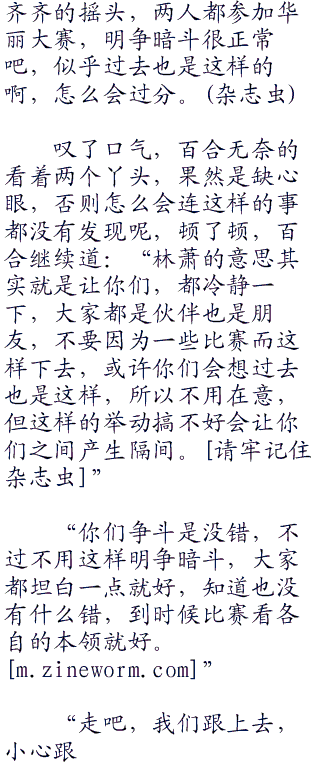 齐齐的摇头，两人都参加华
丽大赛，明争暗斗很正常
吧，似乎过去也是这样的
啊，怎么会过分。(杂志虫)
叹了口气，百合无奈的
看着两个丫头，果然是缺心
眼，否则怎么会连这样的事
都没有发现呢，顿了顿，百
合继续道：“林萧的意思其
实就是让你们，都冷静一
下，大家都是伙伴也是朋
友，不要因为一些比赛而这
样下去，或许你们会想过去
也是这样，所以不用在意，
但这样的举动搞不好会让你
们之间产生隔间。[请牢记住
杂志虫]”
“你们争斗是没错，不
过不用这样明争暗斗，大家
都坦白一点就好，知道也没
有什么错，到时候比赛看各
自的本领就好。
[m.zineworm.com]”
“走吧，我们跟上去，
小心跟